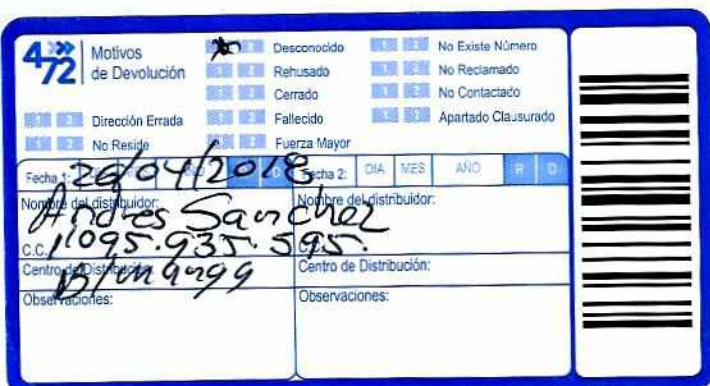 472
Motivos
de Devolución
Dirección Errada
No Reside
Desconocido
Rehusado
Cerrado
Fallecido
Fuerza Mayor
No Existe Número
No Reclamado
No Contactado
Apartado Clausurado
Fecha 1: 26/04/2018
Nombre del distribuidor:
Andres Sanchez
C.C. 1095.935.595.
Centro de Distribución:
B/manga
Observaciones:
Fecha 2: DIA MES AÑO R D
Nombre del distribuidor:
C.C.
Centro de Distribución:
Observaciones: